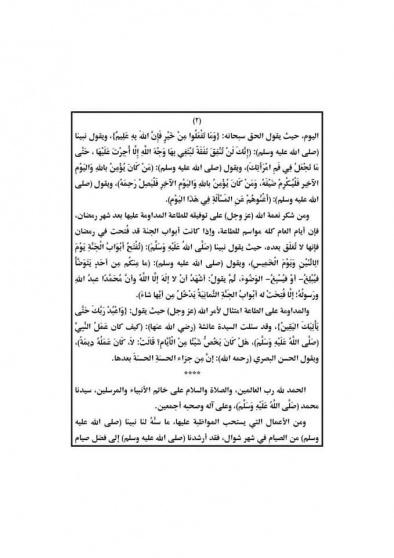 (٢)
اليوم، حيث يقول الحق سبحانه: {وَمَا تَفْعَلُوا مِنْ خَيْرٍ فَإِنَّ اللهَ بِهِ عَلِيمٌ}، ويقول نبينا
(صلى الله عليه وسلم): (إِنَّكَ لَنْ تُنْفِقَ نَفَقَةً تَبْتَغِي بِهَا وَجْهَ اللهِ إِلَّا أُجِرْتَ عَلَيْهَا ، حَتَّى
مَا تَجْعَلُ فِي فَمِ امْرَأَتِكَ)، ويقول (صلى الله عليه وسلم): (مَنْ كَانَ يُؤْمِنُ بِاللهِ وَالْيَوْمِ
الآخِرِ فَلْيُكْرِمْ ضَيْفَهُ، وَمَنْ كَانَ يُؤْمِنُ بِاللهِ وَالْيَوْمِ الآخِرِ فَلْيَصِلْ رَحِمَهُ)، ويقول (صلى
الله عليه وسلم): (أَغْنُوهُمْ عَنِ الْمَسْأَلَةِ فِي هَذَا الْيَوْمِ).
ومن شكر نعمة الله (عز وجل) على توفيقه للطاعة المداومة عليها بعد شهر رمضان،
فإن أيام العام كله مواسم للطاعة، وإذا كانت أبواب الجنة قد فُتحت في رمضان
فإنها لا تُغلق بعده، حيث يقول نبينا (صَلَّى اللهُ عَلَيْهِ وَسَلَّمَ): (تُفْتَحُ أَبْوَابُ الْجَنَّةِ يَوْمَ
الِاثْنَيْنِ وَيَوْمَ الْخَمِيسِ)، ويقول (صلى الله عليه وسلم): (ما مِنكُم مِن أحَدٍ يَتَوَضَّأُ
فيُبْلِغُ- أوْ فيُسْبِغُ- الوَضُوءَ، ثُمَّ يقولُ: أشْهَدُ أنْ لا إلَهَ إلَّا اللَّهُ وأنَّ مُحَمَّدًا عبدُ اللهِ
ورسولُهُ؛ إلَّا فُتِحَتْ له أبْوَابُ الجَنَّةِ الثَّمانِيَةُ يَدْخُلُ مِن أيِّها شاءَ).
والمداومة على الطاعة امتثال لأمر الله (عز وجل) حيث يقول: {وَاعْبُدْ رَبَّكَ حَتَّى
يَأْتِيَكَ الْيَقِينُ}، وقد سئلت السيدة عائشة (رضي الله عنها): كيفَ كانَ عَمَلُ النَّبيِّ
(صَلَّى اللهُ عَلَيْهِ وَسَلَّمَ)، هَلْ كَانَ يَخُصُّ شَيْئًا مِنَ الْأَيَّامِ؟ قَالَتْ: لَا، كَانَ عَمَلُهُ دِيمَةً)،
ويقول الحسن البصري (رحمه الله): إنَّ مِن جزاءِ الحسنةِ الحسنةَ بعدها.
****
الحمد لله رب العالمين، والصلاة والسلام على خاتم الأنبياء والمرسلين، سيدنا
محمد (صَلَّى اللهُ عَلَيْهِ وَسَلَّمَ)، وعلى آله وصحبه أجمعين.
ومن الأعمال التي يستحب المواظبة عليها، ما سنَّهُ لنا نبينا (صلى الله عليه
وسلم) من الصيام في شهر شوال، فقد أرشدنا (صلى الله عليه وسلم) إلى فضل صيام